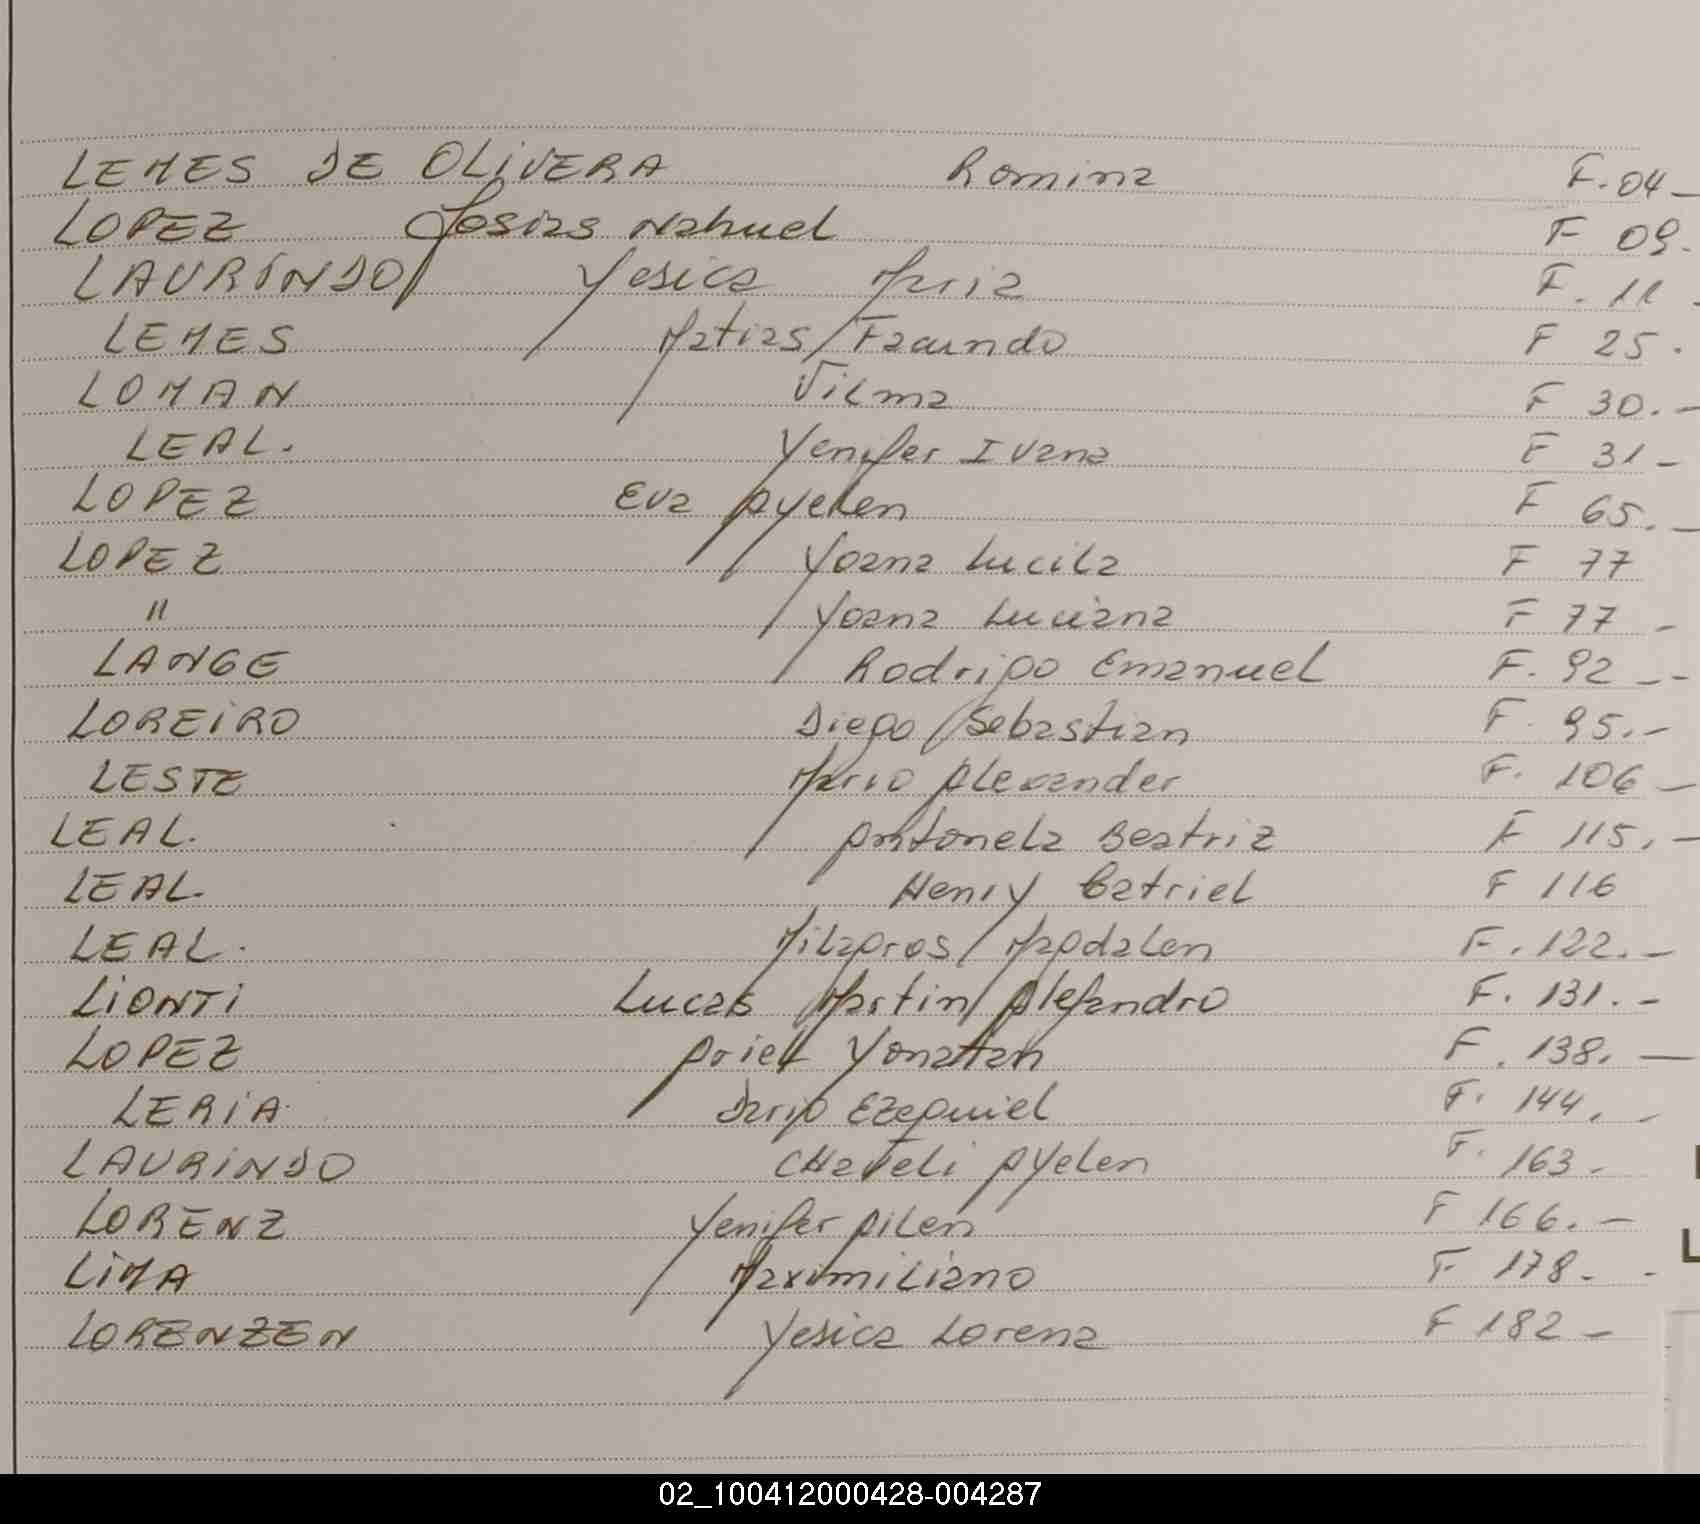 LEMES DE OLIVERA Romina F. 04 -
LOPEZ Josias Nahuel F 09.
LAURINDO Yesica Maria F. 11 -
LEMES Matias Facundo F 25.
LOMAN Vilma F 30. -
LEAL. Yenifer Ivana F 31 -
LOPEZ Eva Ayelen F 65. -
LOPEZ Yoana Lucila F 77
" Yoana Luciana F 77 -
LANGE Rodrigo Emanuel F. 92 --
LOREIRO Diego Sebastian F. 95. -
LESTE Mario Alexander F. 106 -
LEAL. Antonela Beatriz F 115. -
LEAL. Henry Gatriel F 116
LEAL. Milagros Magdalen F. 122. -
LIONTI Lucas Martin Alejandro F. 131. -
LOPEZ Ariel Yonatan F. 138. -
LERIA. Dario Ezequiel F. 144. -
LAURINDO Ayelen F. 163.
LORENZ Yenifer Ailen F 166. -
LIMA Maximiliano F 178. -
LORENZEN Yesica Lorena F 182 -
02_100412000428-004287